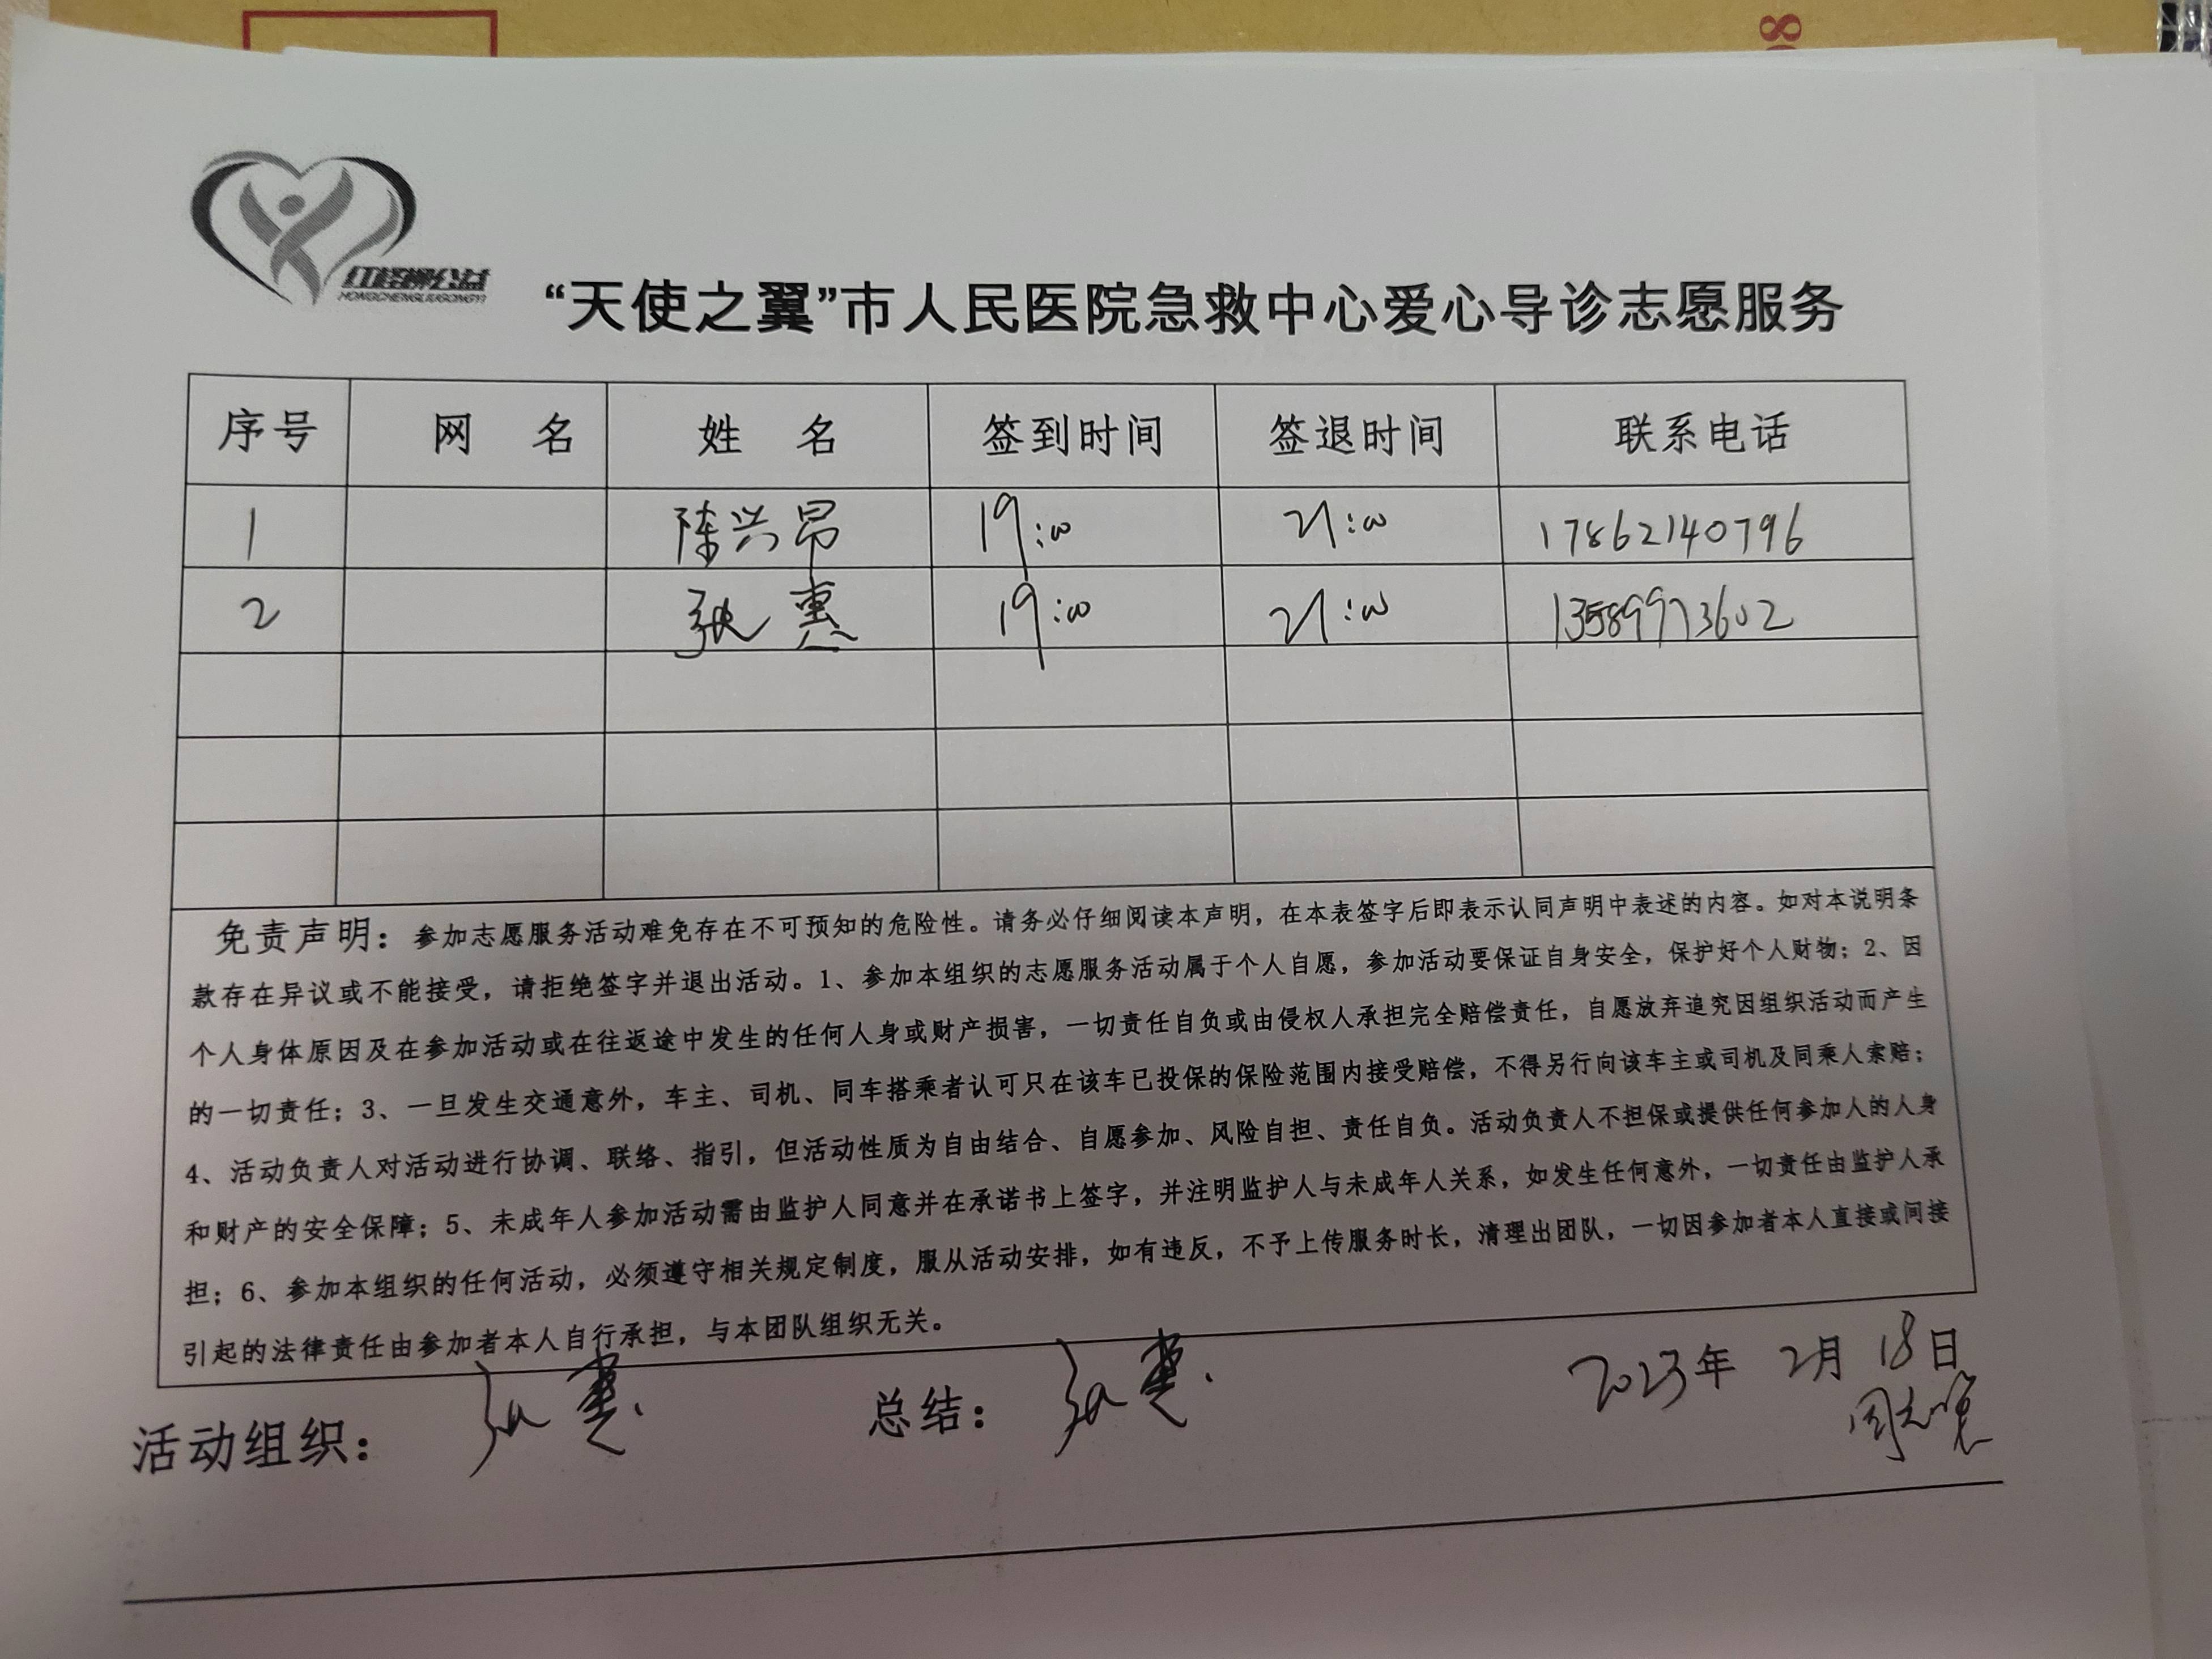 红柽柳公益
HONGCHENGLIUGONGYI
“天使之翼”市人民医院急救中心爱心导诊志愿服务
序号 网 名 姓 名 签到时间 签退时间 联系电话
1 陈兴昂 19:00 21:00 17862140796
2 张惠 19:00 21:00 13589973602
免责声明：参加志愿服务活动难免存在不可预知的危险性。请务必仔细阅读本声明，在本表签字后即表示认同声明中表述的内容。如对本说明条
款存在异议或不能接受，请拒绝签字并退出活动。1、参加本组织的志愿服务活动属于个人自愿，参加活动要保证自身安全，保护好个人财物；2、因
个人身体原因及在参加活动或在往返途中发生的任何人身或财产损害，一切责任自负或由侵权人承担完全赔偿责任，自愿放弃追究因组织活动而产生
的一切责任；3、一旦发生交通意外，车主、司机、同车搭乘者认可只在该车已投保的保险范围内接受赔偿，不得另行向该车主或司机及同乘人索赔；
4、活动负责人对活动进行协调、联络、指引，但活动性质为自由结合、自愿参加、风险自担、责任自负。活动负责人不担保或提供任何参加人的人身
和财产的安全保障；5、未成年人参加活动需由监护人同意并在承诺书上签字，并注明监护人与未成年人关系，如发生任何意外，一切责任由监护人承
担；6、参加本组织的任何活动，必须遵守相关规定制度，服从活动安排，如有违反，不予上传服务时长，清理出团队，一切因参加者本人直接或间接
引起的法律责任由参加者本人自行承担，与本团队组织无关。
活动组织：张惠 总结：张惠 2023年 2月 18日